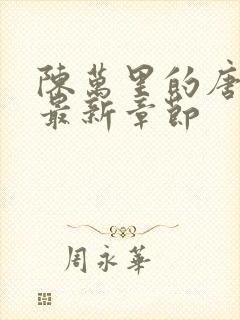 陳萬里的唐
最新章節
周永華